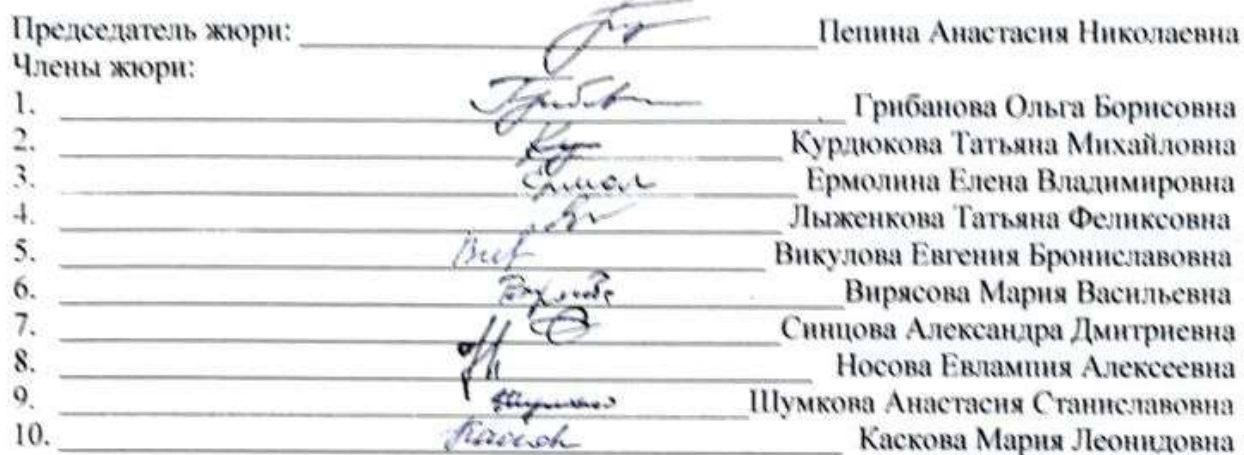 Председатель жюри: Пепина Анастасия Николаевна
Члены жюри:
1. Грибанова Ольга Борисовна
2. Курдюкова Татьяна Михайловна
3. Ермолина Елена Владимировна
4. Лыженкова Татьяна Феликсовна
5. Викулова Евгения Брониславовна
6. Вирясова Мария Васильевна
7. Синцова Александра Дмитриевна
8. Носова Евлампия Алексеевна
9. Шумкова Анастасия Станиславовна
10. Каскова Мария Леонидовна